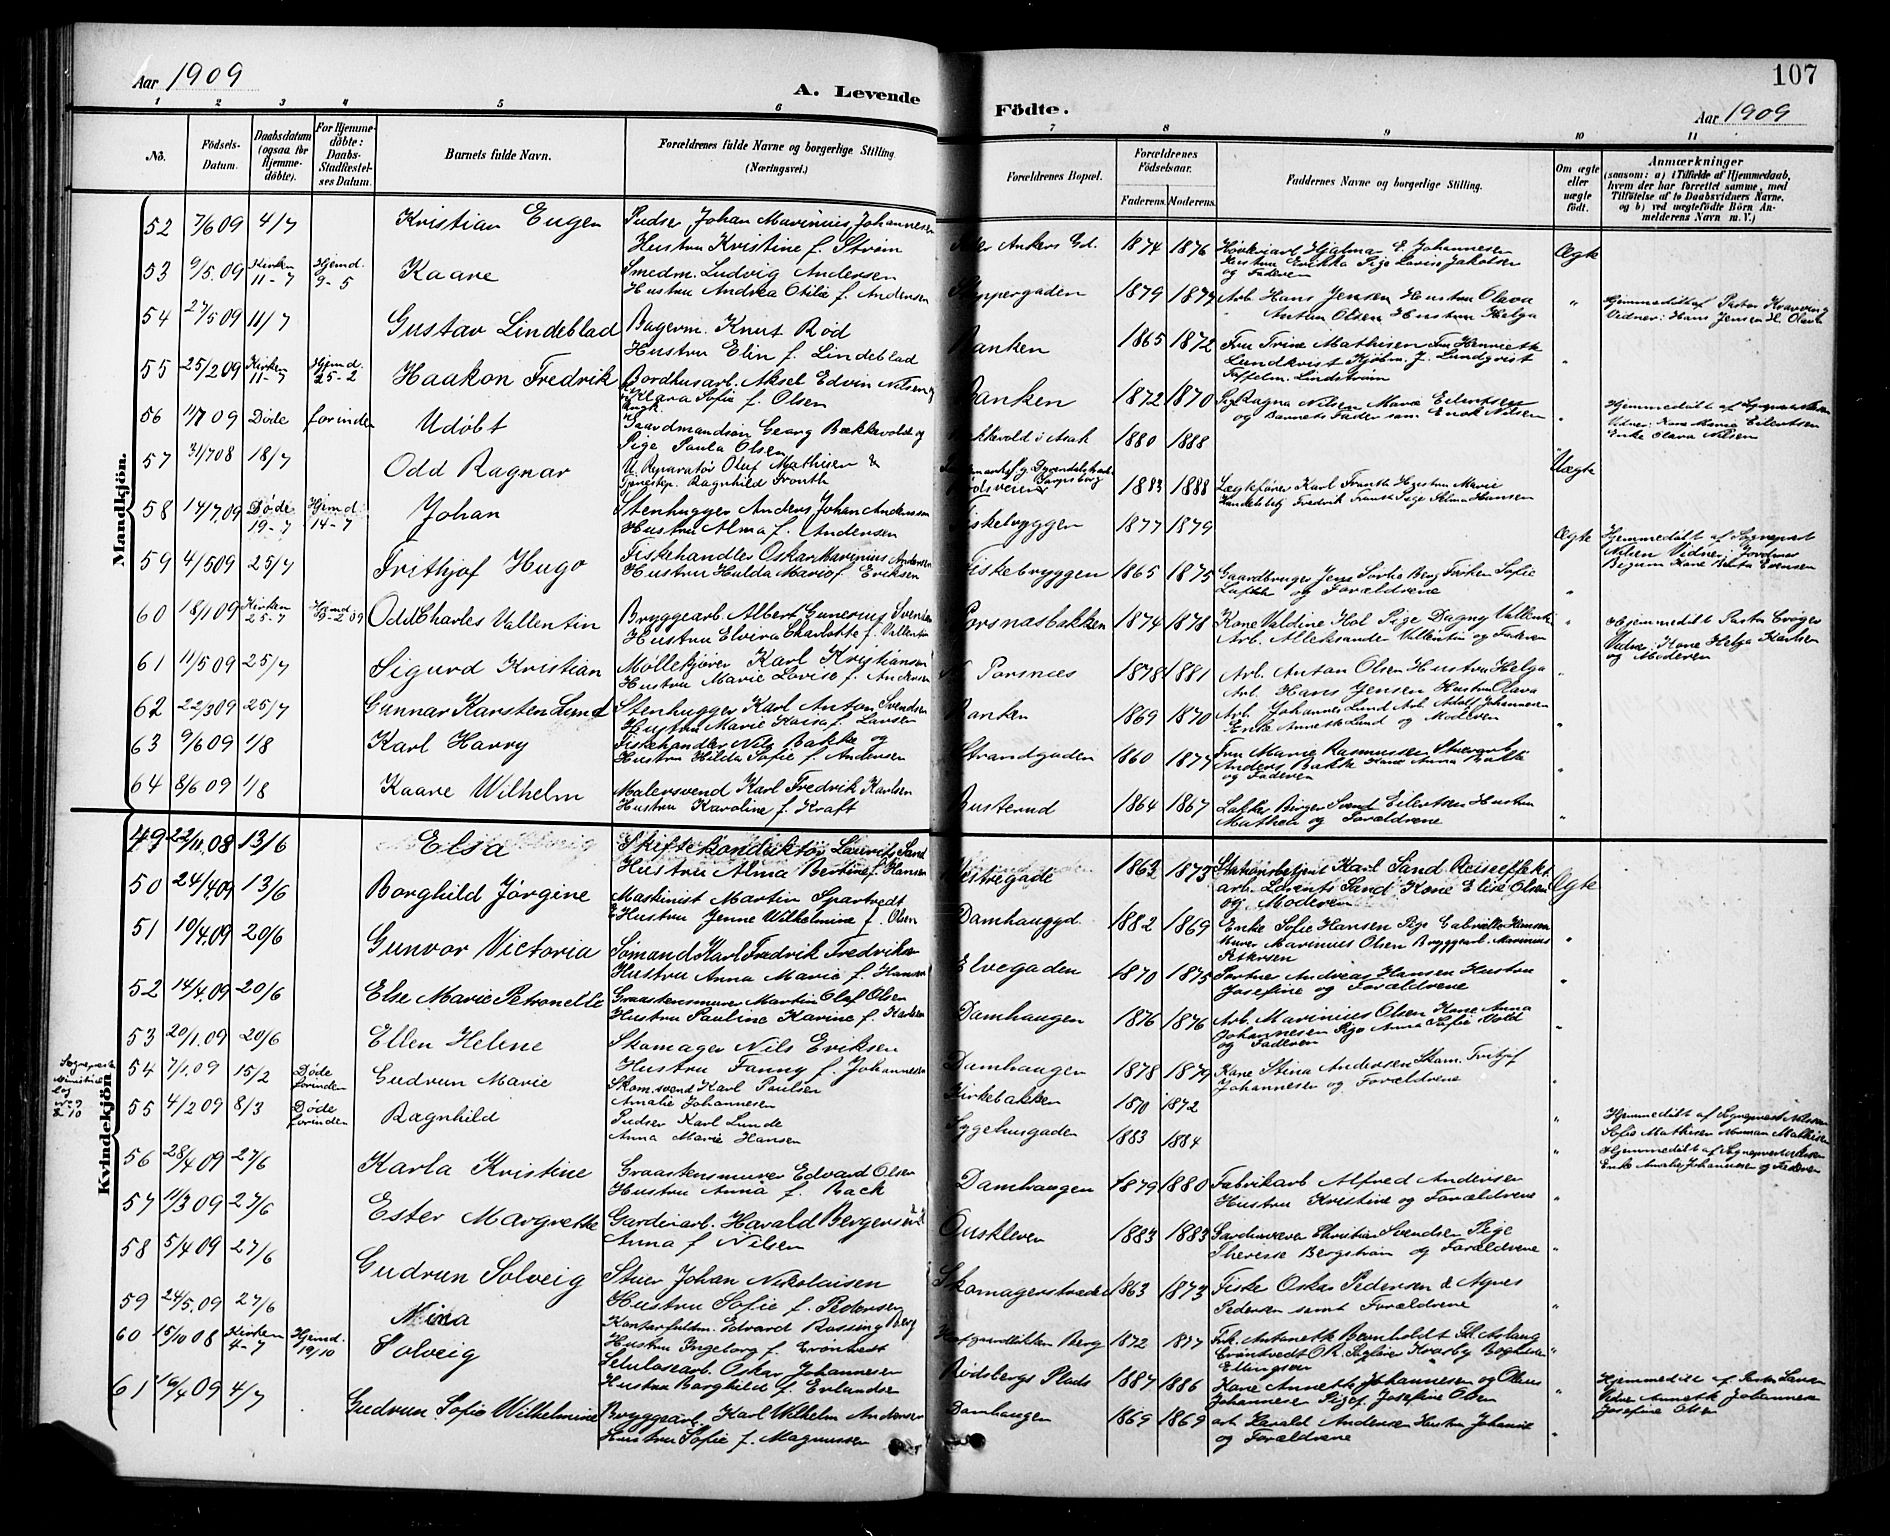 Aar 1909
A. Levende
Födte.
107
Aar 1909
1 2 3 4 5 6 7 8 9 10 11
No.
Födsels-Datum.
Daabsdatum (ogsaa for Hjemme-döbte).
For Hjemme-döbte: Daabs-Stadfæstel-ses Datum.
Barnets fulde Navn.
Forældrenes fulde Navne og borgerlige Stilling (Næringsvei.)
Forældrenes Bopæl.
Forældrenes Födselsaar.
Faderens. Moderens.
Faddernes Navne og borgerlige Stilling.
Om ægte eller uægte födt.
Anmærkninger (saasom: a) i Tilfælde af Hjemmedaab, hvem der har forrettet samme, med Tilföielse af to Daabsvidners Navne, og b) ved uægtefödte Börn An-melderens Navn m. V.)
Mandkjön.
52 7/6 09 4/7 Kristian Eugen Pudser Johan Marinius Johannesen
Hustru Kristine f. Strøm
Ankers Gd. 1874 1876 Hjalmar E. Johannesen
og Faderen
Ægte
53 9/5.09 Kirken 11-7 Hjemd. 9-5 Kaare Smedm. Ludvig Andersen
Hustru Andrea Otilie f. Andersen
1879 1877 Arb. Hans Jensen Hustru Olava
Anton Olsen Hustru Helga
" Hjemmedöbt af Pastor
Vidner: Hans Jensen H. Olava
54 27/5 09 11/7 Gustav Lindeblad Bagerm. Knut Rød
Hustru Elin f. Lindeblad
Banken 1865 1872 Fru Trine Mathisen Fru Henriette
Lundkvist Kjøbm. J. Lundqvist
Lindstrøm
"
55 25/2 09 Kirken 11-7 Hjemd. 25-2 Haakon Fredrik Bordhusarb. Aksel Edvin Nilsen og
Klara Sofie f. Olsen
Banken 1872 1870 Ragna Nilsen Marie Eilertsen
og Barnets Fader samt Enok Nilsen
" Hjemmedöbt af Sognepræst Nilsen
Vidner: Kone Marie Eilertsen
Enke Olava Nilsen
56 11/7 09 Döde forinden Udöbt Gaardmandssön Georg Bækkevold og
Pige Paula Olsen
Bækkevold i Asak 1880 1888 Uægte
57 31/7 08 18/7 Odd Ragnar U. Reparatør Oluf Mathisen &
Tjenestep. Ragnhild Fronth
Sarpsborg
1883 1888 Karl Fronth Hustru Marie
Fredrik Fronth Pige Alma Hansen
58 14/7.09 Döde 19-7 Hjemd. 14-7 Johan Stenhugger Anders Johan Andersen
Hustru Alma f. Andersen
Fiskebryggen 1877 1879 Ægte Hjemmedöbt af Sognepræst
Nilsen Vidner: Jordmor
Kone Berta Evensen
59 4/5 09 25/7 Frithjof Hugo Fiskehandler Oskar Marinius Andersen
Hustru Hulda Marie f. Eriksen
Fiskebryggen 1865 1875 Gaardbruger Jens Berg Frøken Sofie
og Forældrene
"
60 18/1 09 Kirken 25-7 Odd Charles Vallentin Bryggearb. Albert Gunerius Svendsen
Hustru Elvira Charlotte f. Vallentin
Porsnæsbakken 1874 1878 Kone Valdine Hol Pige Dagny Vallentin
Arb. Alleksander Vallentin og Faderen
" Hjemmedöbt Pastor
Vidner: Kone Helga Karlsen
og Moderen
61 11/5 09 25/7 Sigurd Kristian Møllekjører Karl Kristiansen
Hustru Marie Lovise f. Andersen
N. Porsnæs 1878 1881 Arb. Anton Olsen Hustru Helga
Arb. Hans Jensen Hustru Olava
"
62 22/3 09 25/7 Gunnar Karsten Lund Stenhugger Karl Anton Svendsen
Hustru Marie Kaisa f. Larsen
Banken 1869 1870 Arb. Johannes Lund Arb. Adolf Johannesen
Enke Annette Lund og Moderen
63 9/6 09 1/8 Karl Harry Fiskehandler Nils Bakke og
Hustru Hilda Sofie f. Andersen
Strandgaden 1860 1877 Fru Marie Rasmussen
Anders Bakke Kone Anna Bakke
og Faderen
"
64 8/6 09 1/8 Kaare Wilhelm Malersvend Karl Fredrik Karlsen
Hustru Karoline f. Kraft
Busterud 1864 1867 Svend Eilertsen Hustru
Mathea og Forældrene
"
Kvindekjön
49 22/11.08 13/6 Elsa Skiftekonduktør Laurits Sand
Hustru Alma Bertine f. Hansen
Vestregade 1863 1873 Stationsbetjent Karl Sand
arb. Lorents Sand Kone Elise Olsen
og Moderen
Ægte
50 24/4.09 13/6 Borghild Jørgine Maskinist Martin Spartvedt
Hustru Jenne Wilhelmine f. Olsen
Damhauggd. 1882 1869 Enke Sofie Hansen Pige Gabrielle Hansen
Murer Marinius Olsen Bryggearb. Marinius
Petersen
"
51 10/4.09 20/6 Gunvor Victoria Sømand Karl Fredrik Fredriksen
Hustru Anna Marie f. Hansen
Elvegaden 1870 1875 Andreas Hansen Hustru
Josefine og Forældrene
"
52 14/4.09 20/6 Else Marie Petronelle Graastensmurer Martin Olaf Olsen
Hustru Pauline Karine f. Karlsen
Damhaugen 1876 1876 Arb. Marinius Olsen Kone Anna
Johannesen Pige Anna Sofie
og Faderen
"
53 20/1.09 20/6 Ellen Helene Skomager Nils Eriksen
Hustru Fanny f. Johannesen
Damhaugen 1878 1879 Kone Stina Andersen Skom. Frithjof
Johannesen og Forældrene
"
54 7/1.09 15/2 Döde forinden Gudrun Marie Skom.svend Karl Paulsen
Amalie Johannesen
Kirkebakken 1870 1872
" Hjemmedöbt af Sognepræst Nilsen
Sofie Mathisen Mathisen
55 4/2 09 8/3 Döde forinden Ragnhild Pudser Karl Lunde
Anna Marie Hansen
Sygehusgaden 1883 1884
" Hjemmedöbt af Sognepræst Nilsen
Enke Amalie Johannesen og Faderen
56 28/4 09 27/6 Karla Kristine Graastensmurer Edvard Olsen
Hustru Anna f. Back
Damhaugen 1879 1880 Fabrikarb Alfred Andersen
Hustru Kristine og Forældrene
"
57 11/3 09 27/6 Ester Margrethe Harald Bergersen
Anna f Nilsen
1883 1883 Christian Svendsen Pige
Therese Bergstrøm og Forældrene
"
58 5/4 09 27/6 Gudrun Solveig Stuer Johan Nikolaisen
Hustru Sofie f. Pedersen
Skomagerstrædet 1863 1873 Fiske Oskar Pedersen & Agnes
Pedersen samt Forældrene
"
59 24/5.09 27/6 Mina Kontorfuldm. Edvard Rossing Berg
Hustru Ingeborg f. Grøntvedt
Berg 1872 1877 Frk. Antonette Bernholdt Aslaug
Grøntvedt
Ellingsen
"
60 15/10 08 Kirken 4-7 Hjemd. 19/10 Solveig Celulosearb. Oskar Johannesen
Hustru Borghild f. Erlandsen
Rødsbergs Plads 1887 1886 Kone Annette Johannesen og Olaus
Johannesen Pige Josefine Olsen
" Hjemmedöbt af Pastor
Vidner Annette Johannesen
Josefine Olsen
61 16/4 09 4/7 Gudrun Sofie Wilhelmine Bryggearb. Karl Wilhelm Andersen
Hustru Sofie f. Magnussen
Damhaugen 1869 1869 arb Harald Andersen Hustru Johanne
og Forældrene
"